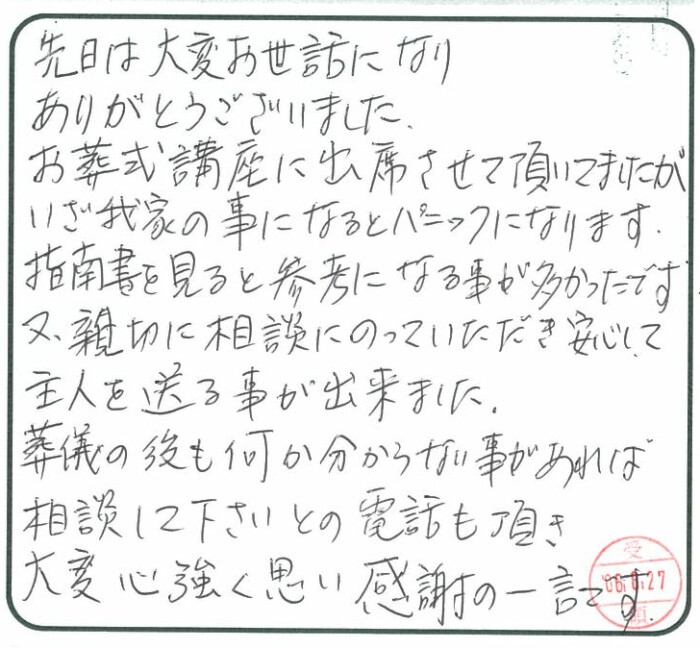 先日は大変お世話になり
ありがとうございました.
お葬式講座に出席させて頂いてましたが
いざ我家の事になるとパニックになります.
指南書を見ると参考になる事が多かったです
又、親切に相談にのっていただき安心して
主人を送る事が出来ました.
葬儀の後も何か分からない事があれば
相談して下さいとの電話も頂き
大変心強く思い感謝の一言です.
受
領